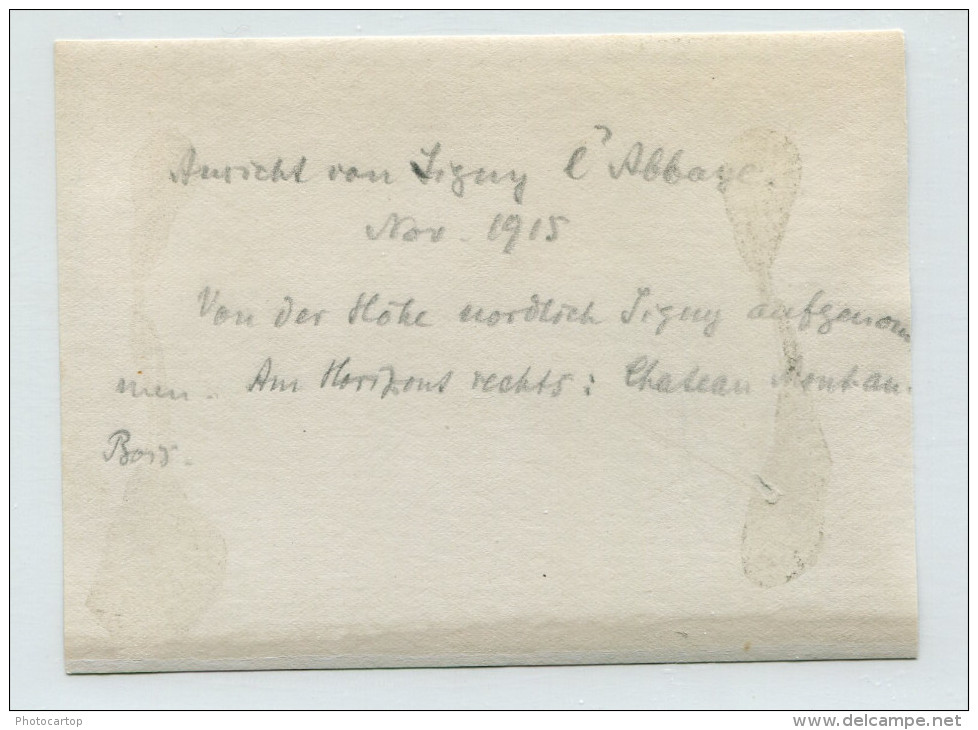 Ansicht von Signy l'Abbaye.
Nov. 1915
Von der Höhe nordlich Signy aufgenom
men. Am Horizont rechts: Chateau Montau.
Bois.
Photocartop
www.delcampe.net